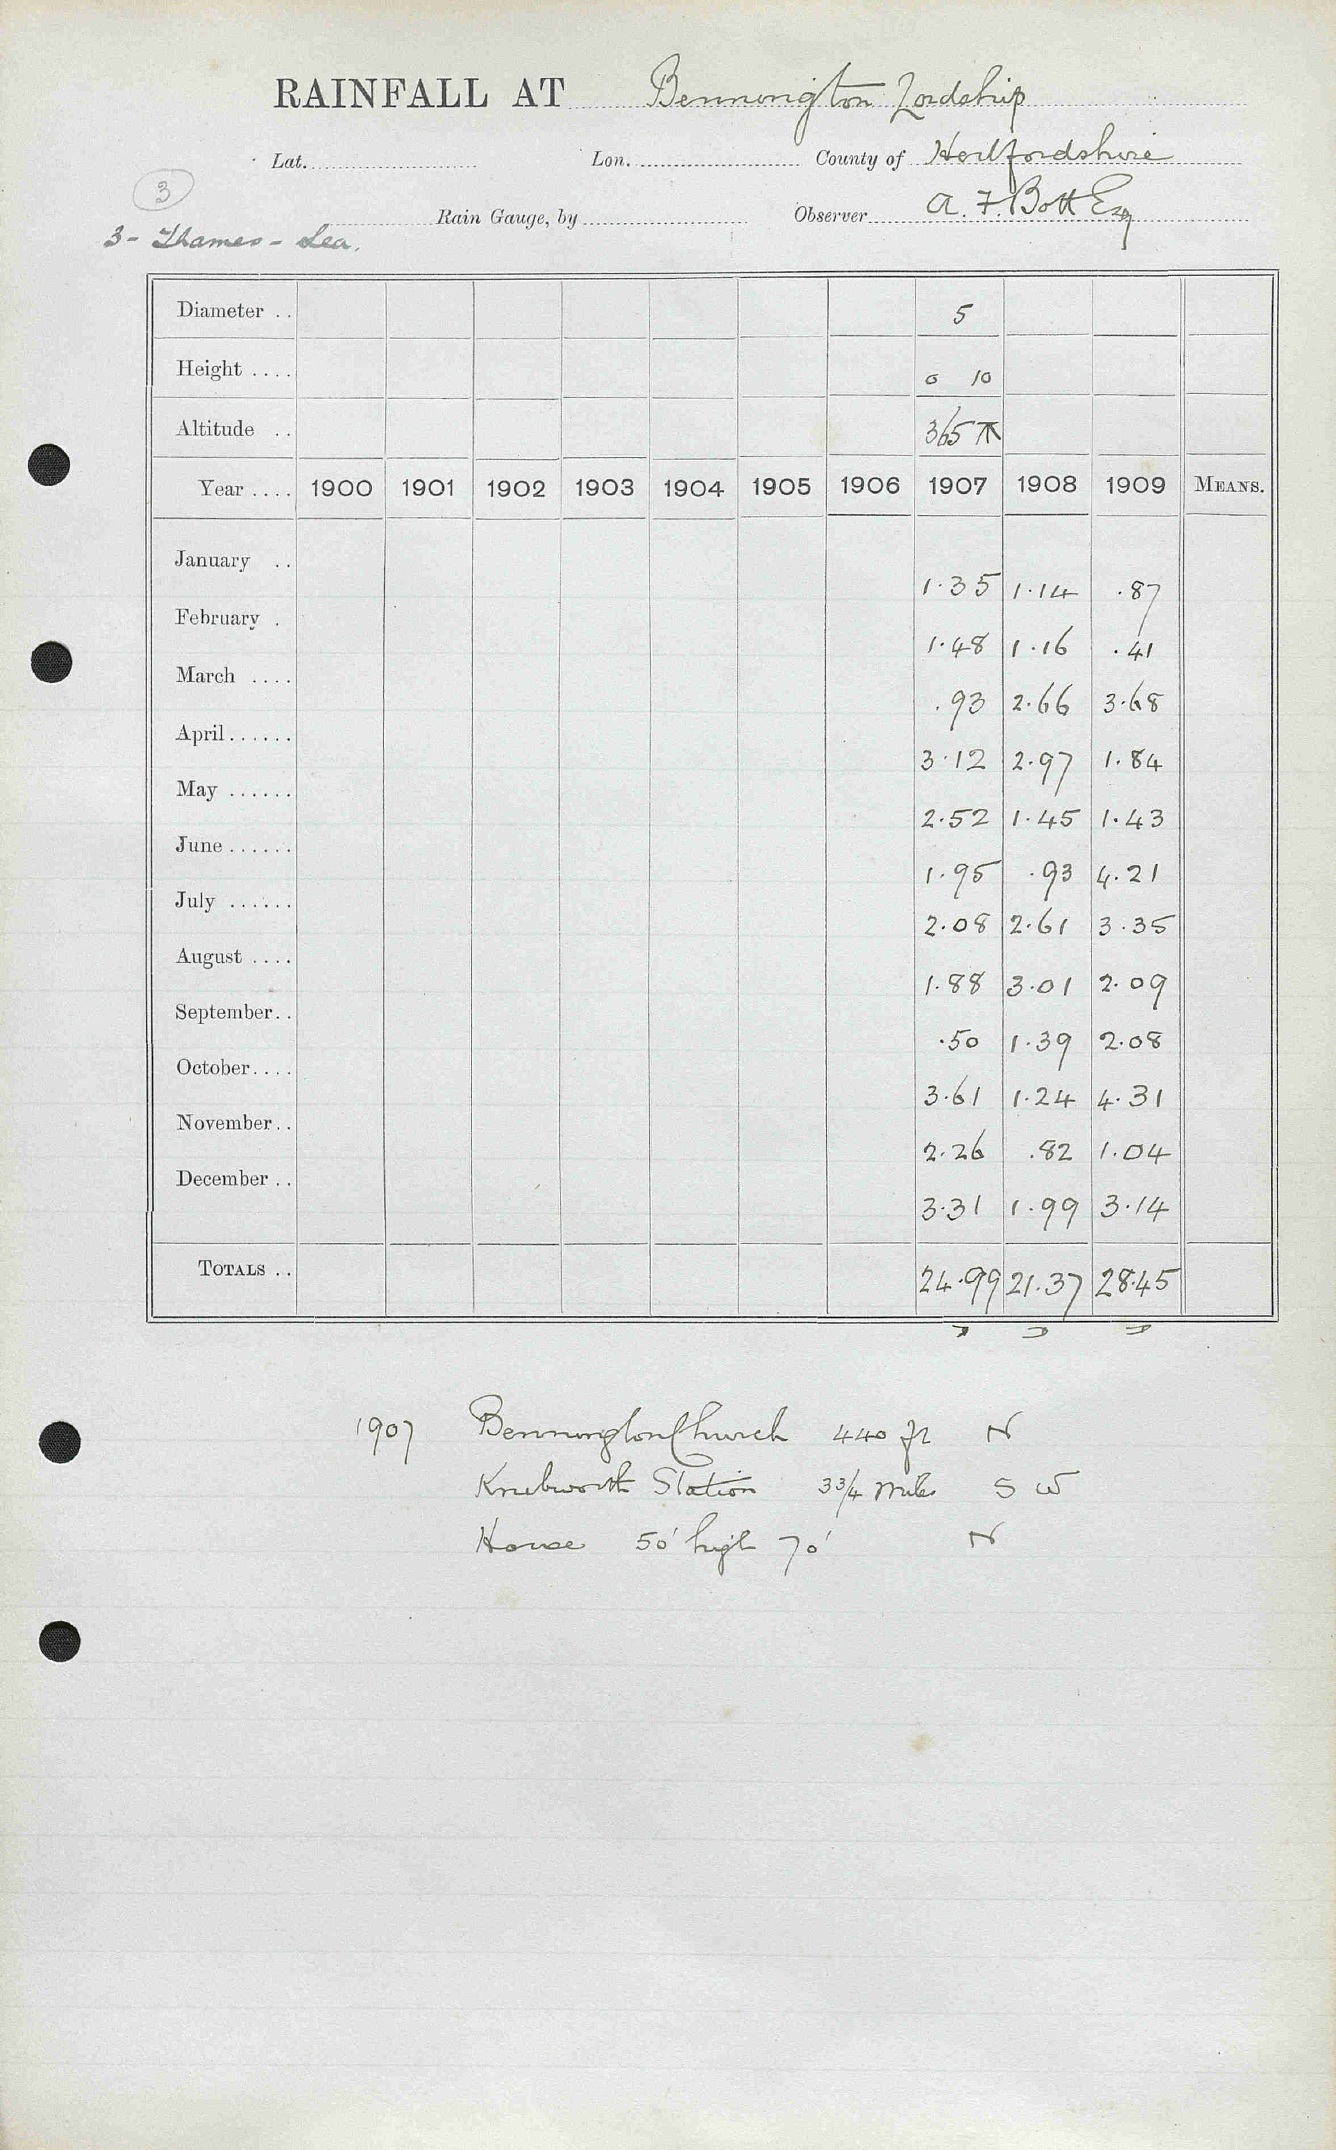 RAINFALL AT Bennington Lordship
Lat. Lon. County of Hertfordshire
3
Rain Gauge, by Observer A. F. Bott Esq
3 - Thames - Lea.
Diameter .. 5
Height .... 0 10
Altitude .. 365
Year .... 1900 1901 1902 1903 1904 1905 1906 1907 1908 1909 MEANS.
January .. 1.35 1.14 .87
February . 1.48 1.16 .41
March .... .93 2.66 3.68
April...... 3.12 2.97 1.84
May ...... 2.52 1.45 1.43
June ...... 1.95 .93 4.21
July ...... 2.08 2.61 3.35
August .... 1.88 3.01 2.09
September.. .50 1.39 2.08
October.... 3.61 1.24 4.31
November.. 2.26 .82 1.04
December .. 3.31 1.99 3.14
TOTALS .. 24.99 21.37 28.45
1907 Bennington Church 440 ft N
Knebworth Station 3 3/4 miles S W
House 50' high 70' N